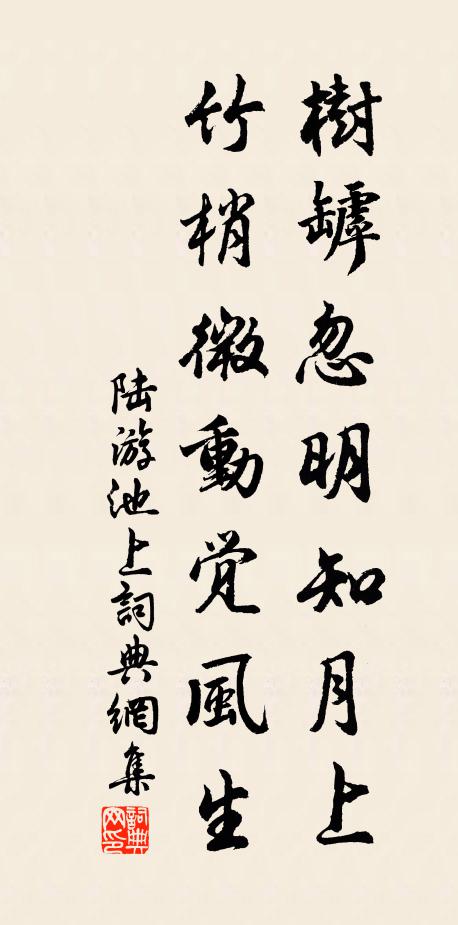 樹罅忽明知月上
竹梢微動覚風生
陆游池上詞典網集
詞典网印